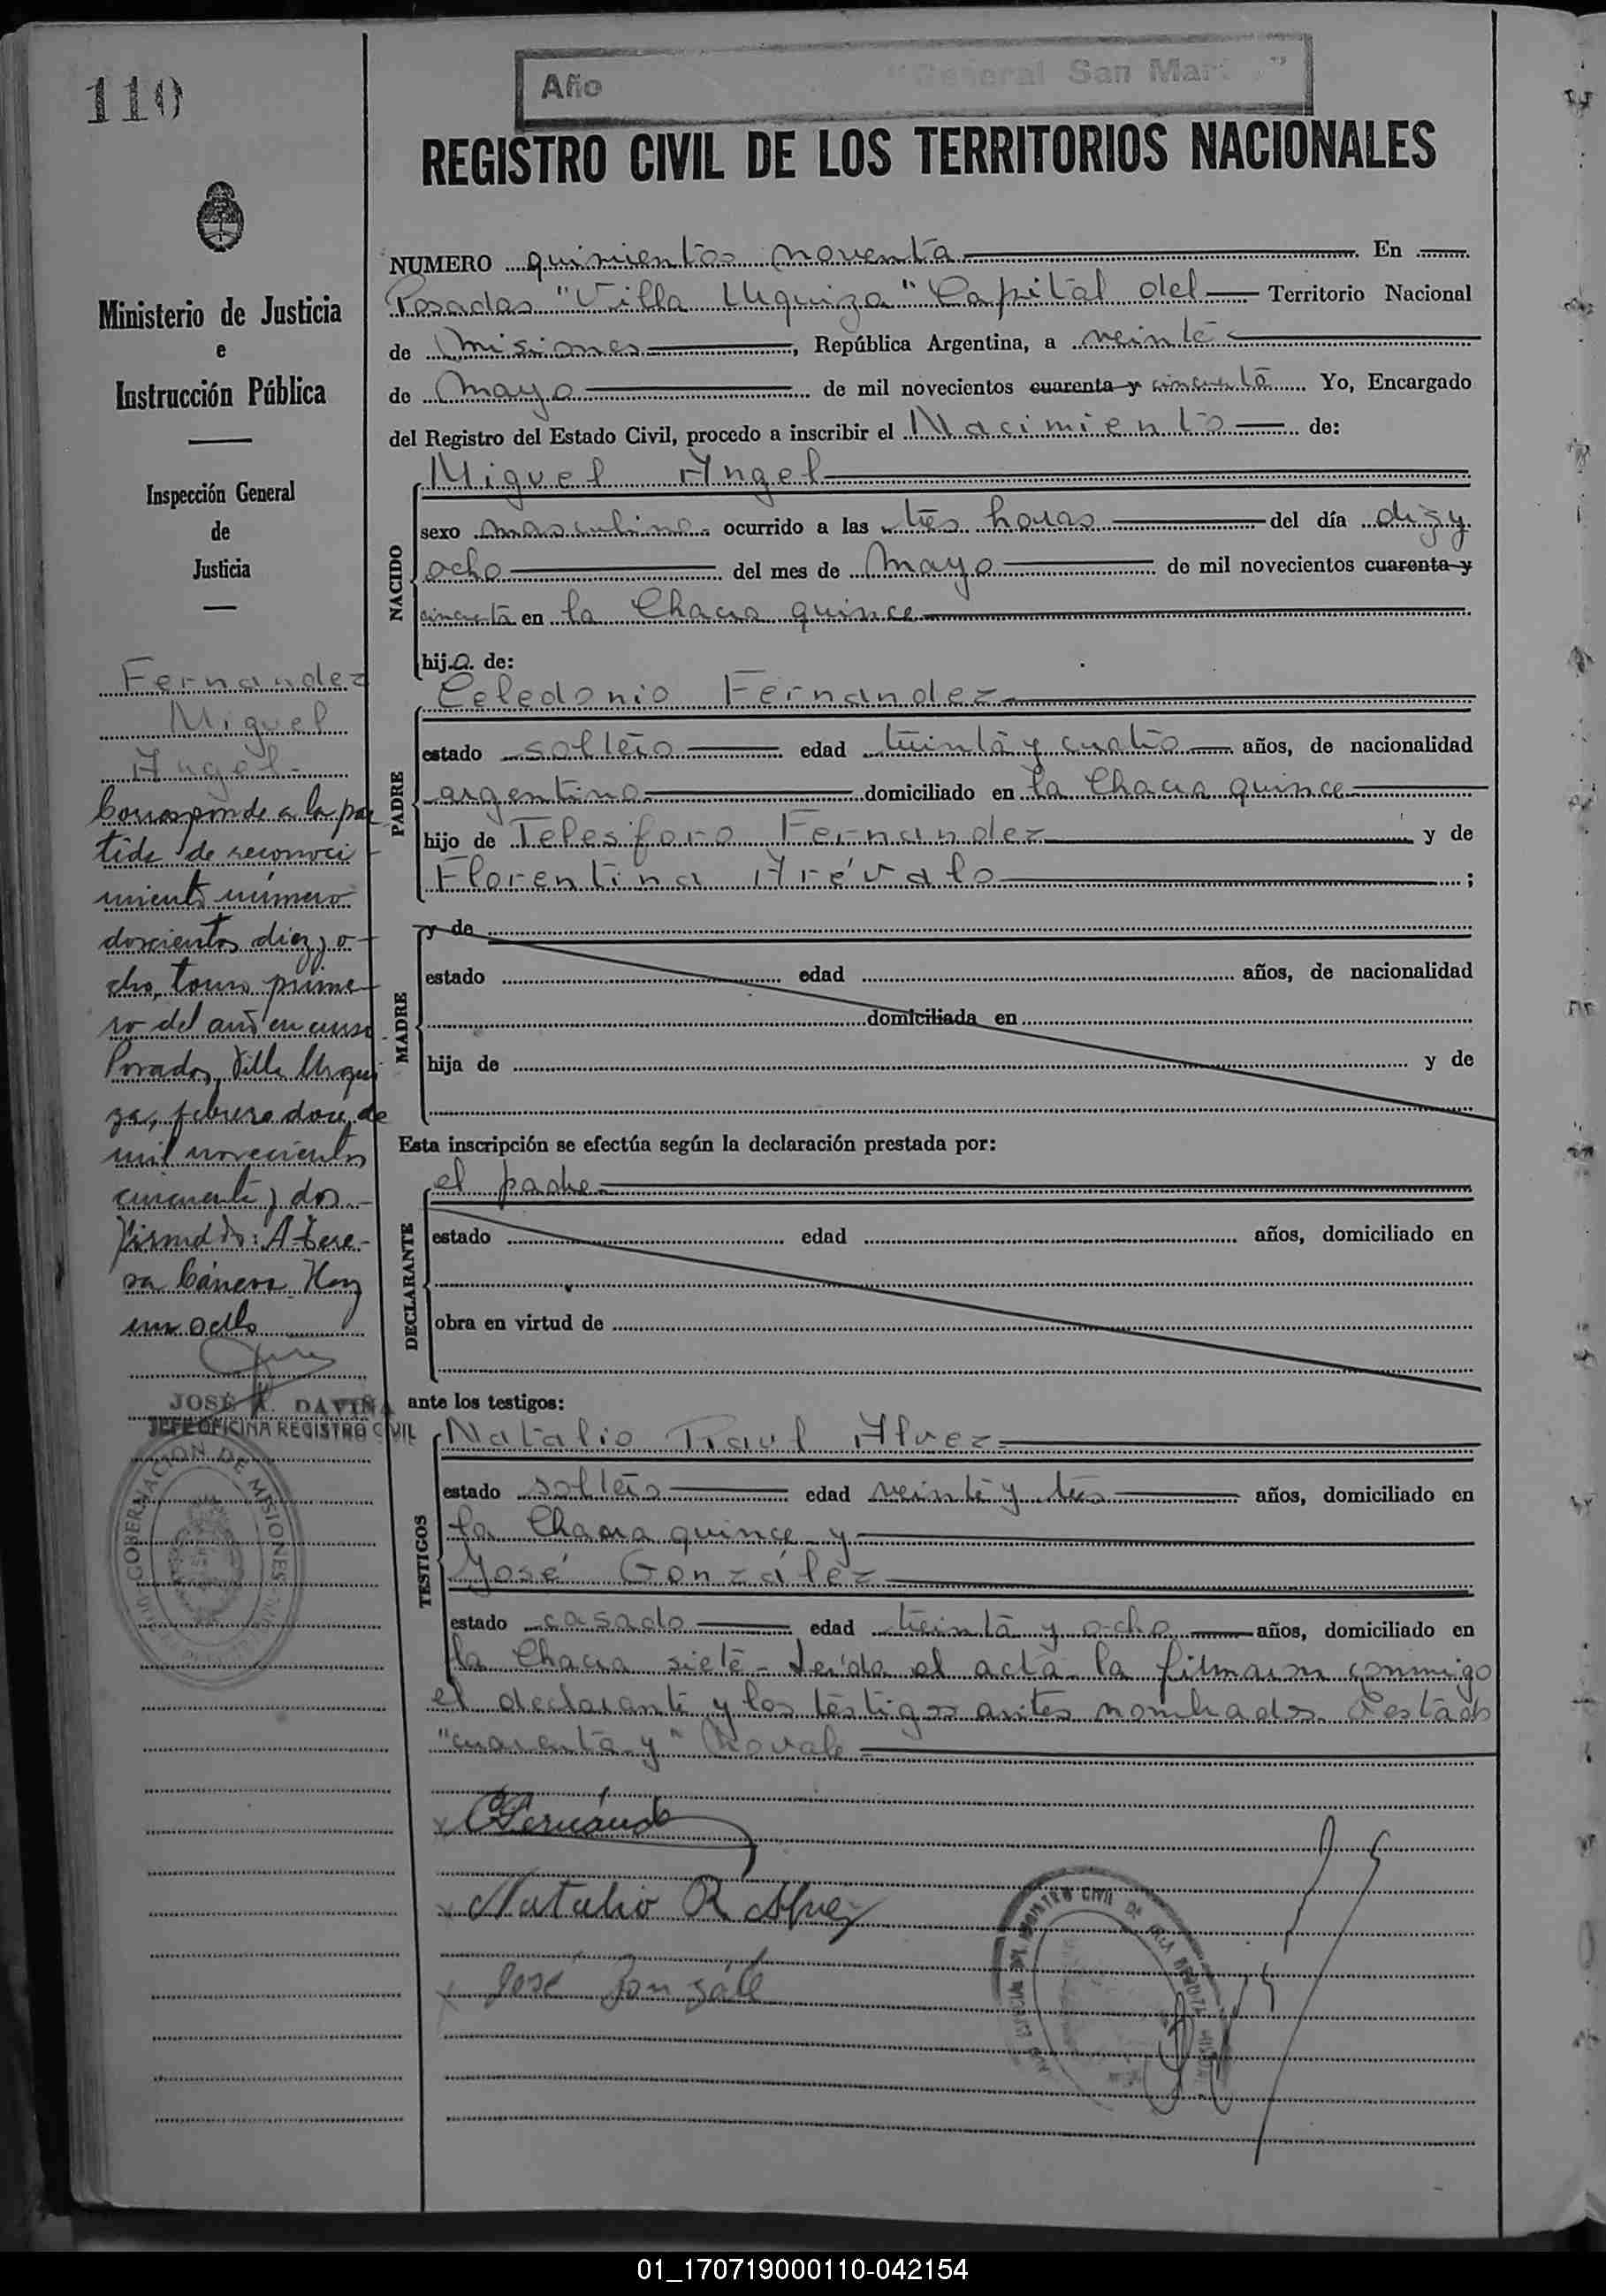 110
Año "General San Mar "
REGISTRO CIVIL DE LOS TERRITORIOS NACIONALES
Ministerio de Justicia
e
Instrucción Pública
Inspección General
de
Justicia
Fernandez
Miguel
Angel.-
Corresponde a la par
tida de reconoci
miento número
doscientos diez y o-
cho, tomo prime-
ro del año en curso
Posadas, Villa Urqui
za, febrero doce de
mil novecientos
cincuenta y dos.-
Firmado: A Tere-
sa Cánera. Hay
un sello
JOSÉ A. DAVIÑA
JEFE OFICINA REGISTRO CIVIL
GOBERNACION DE MISIONES
NUMERO quinientos noventa En
Posadas "Villa Urquiza" Capital del Territorio Nacional
de Misiones, República Argentina, a veinte
de Mayo de mil novecientos cuarenta y cincuenta Yo, Encargado
del Registro del Estado Civil, procedo a inscribir el Nacimiento de:
NACIDO
Miguel Angel
sexo masculino ocurrido a las tres horas del día diez y
ocho del mes de Mayo de mil novecientos cuarenta y
cincuenta en la Chacra quince
hijo de:
PADRE
Celedonio Fernandez
estado soltero edad treinta y cuatro años, de nacionalidad
argentino domiciliado en la Chacra quince
hijo de Telesforo Fernandez y de
Florentina Arévalo ;
MADRE
y de
estado edad años, de nacionalidad
domiciliada en
hija de y de
Esta inscripción se efectúa según la declaración prestada por:
DECLARANTE
el padre
estado edad años, domiciliado en
obra en virtud de
ante los testigos:
TESTIGOS
Natalio Raul Alvez
estado soltero edad veinte y tres años, domiciliado en
la Chacra quince y
José González
estado casado edad treinta y ocho años, domiciliado en
la Chacra siete - Leída el acta la firmaron conmigo
el declarante y los testigos antes nombrados. Testado
"cuarenta y" No vale
x CFernánd
x Natalio R Alvez
x José Gonzále
REGISTRO CIVIL DE
01_170719000110-042154